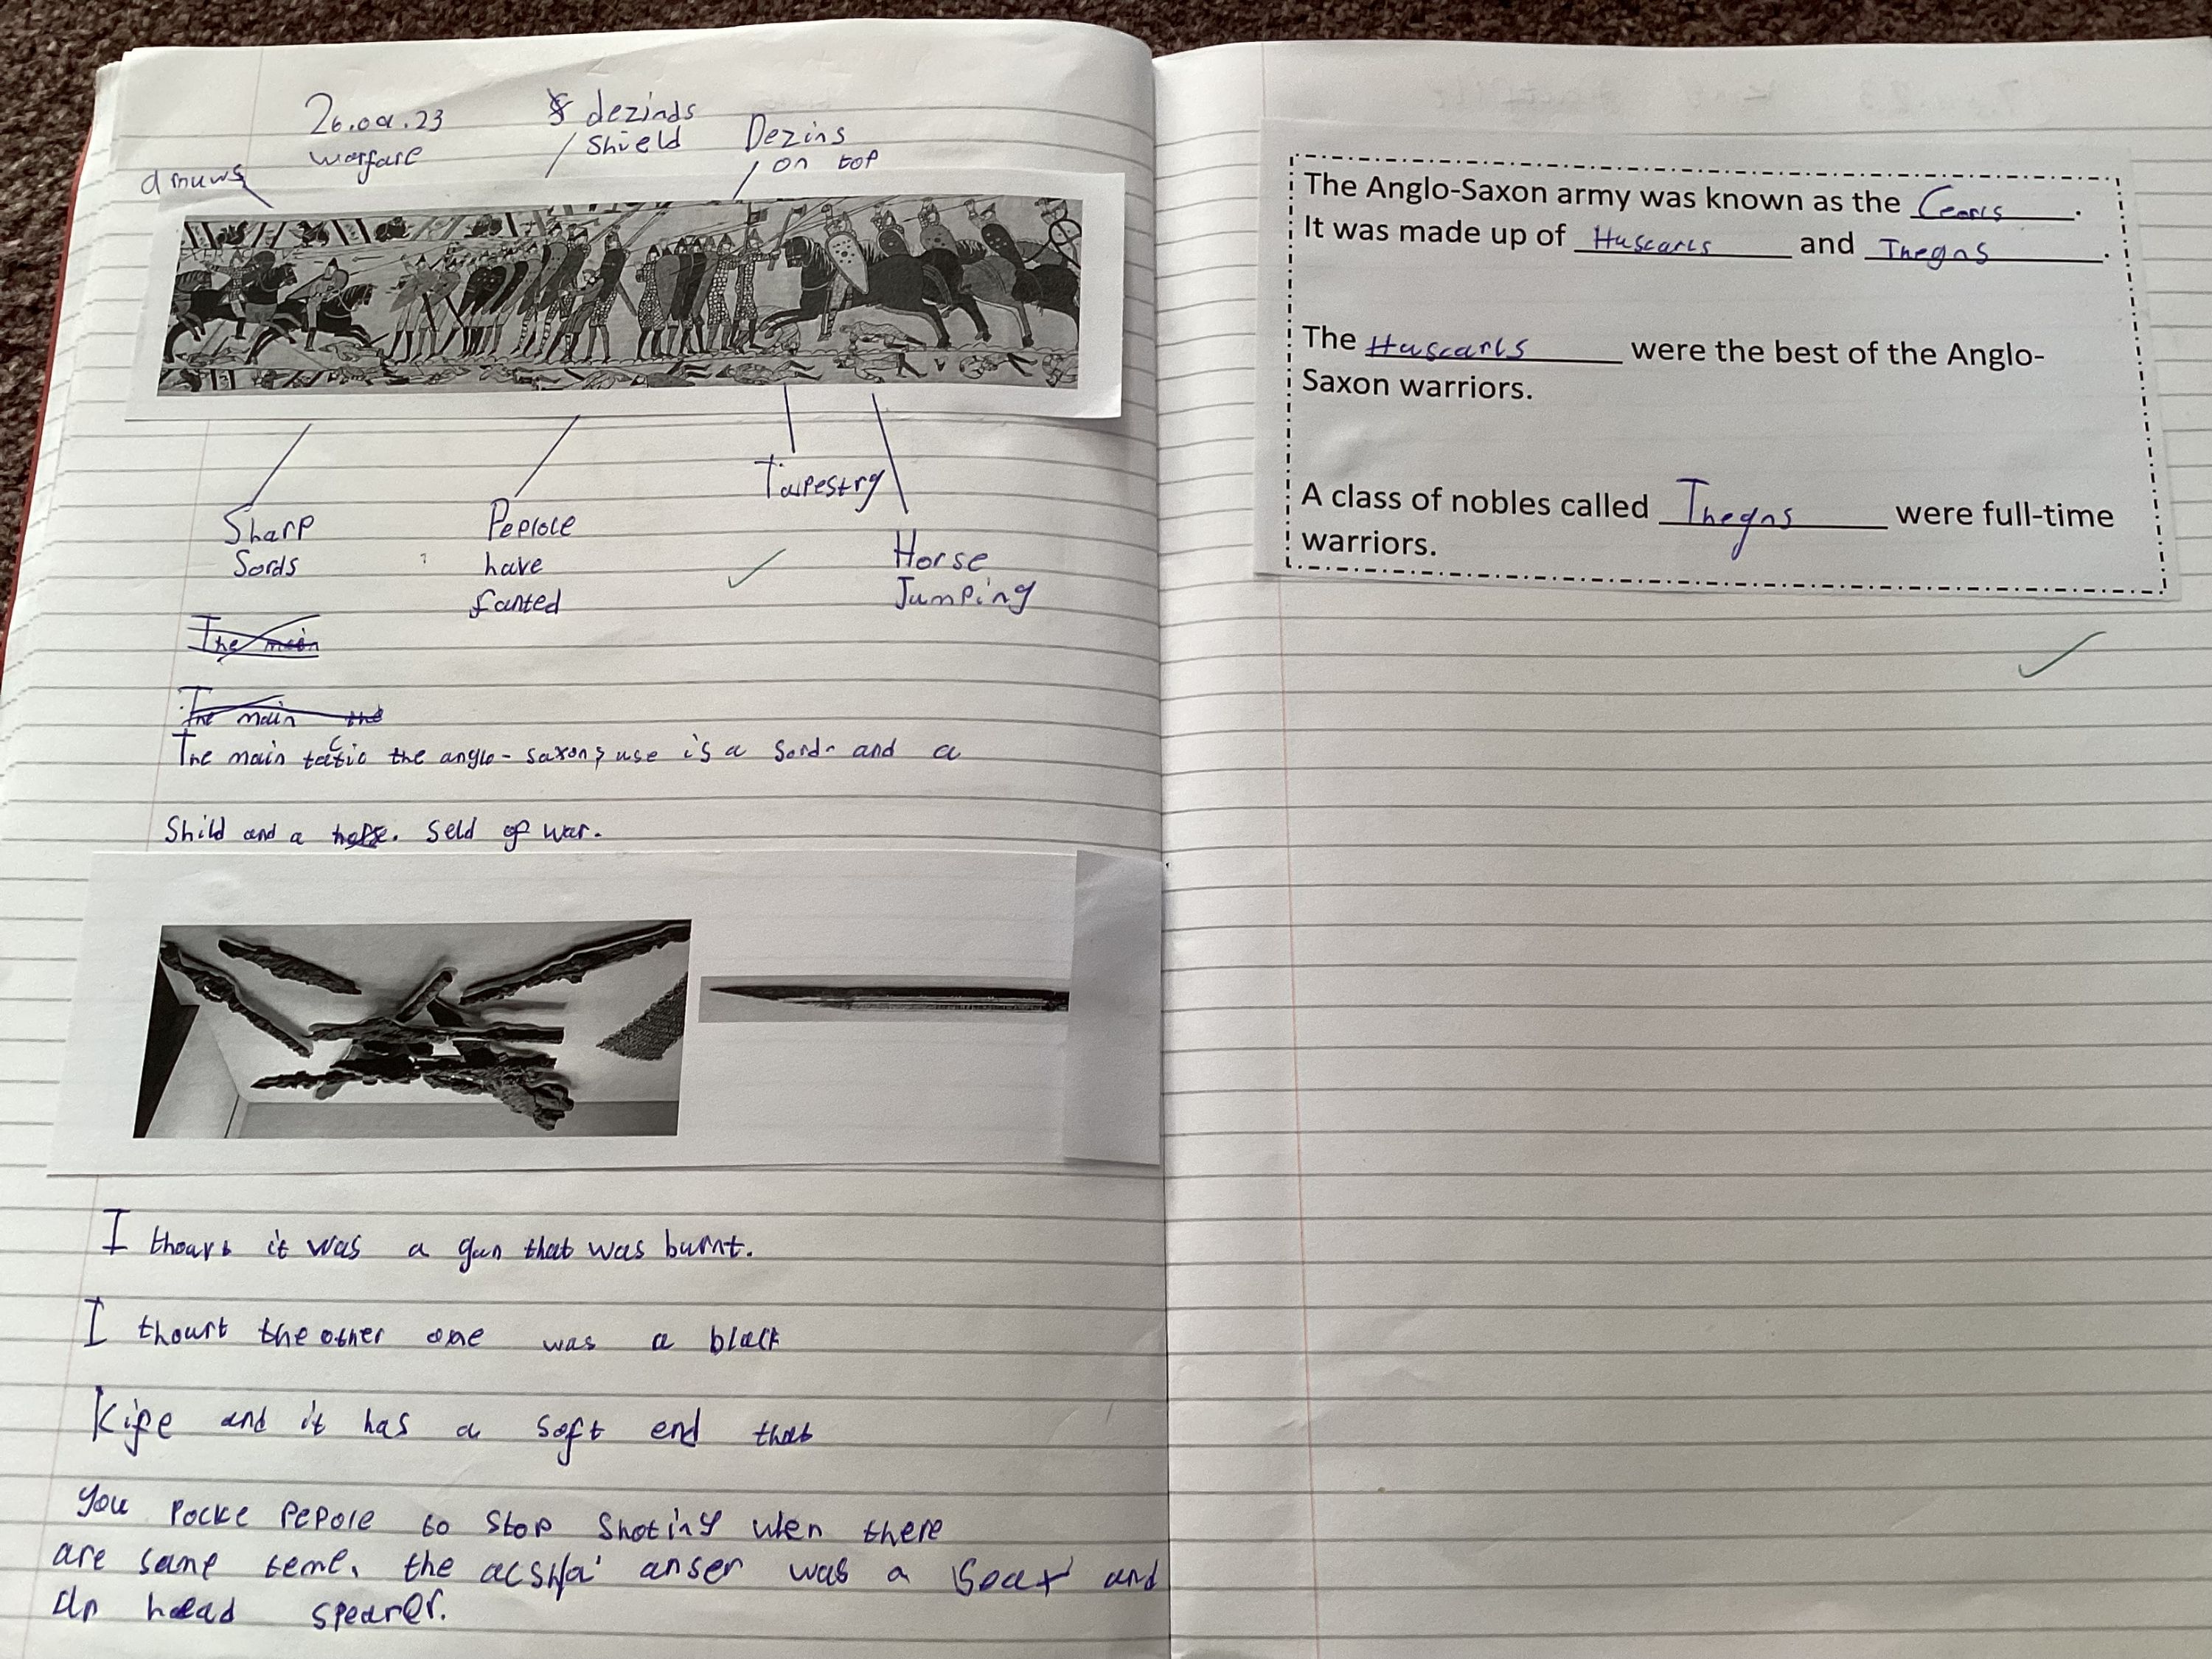 26.09.23
warfare
dezinds
Shield
Dezins
on top
amuws
Sharp
Sords
Peplole
have
fanted
Tarpestry
Horse
Jumping
The main
The main the
The main tactic the anglo-saxons use is a Sord and a
Shild and a horse. Seld of war.
I thourt it was a gun that was burnt.
I thourt the other one was a black
Kife and it has a soft end that
you Pocke Pepole to stop shoting wen there
are same teme. the acshal anser was a Seax and
an head spearer.
The Anglo-Saxon army was known as the Ceorls.
It was made up of Huscarls and Thegns.
The Huscarls were the best of the Anglo-
Saxon warriors.
A class of nobles called Thegns were full-time
warriors.